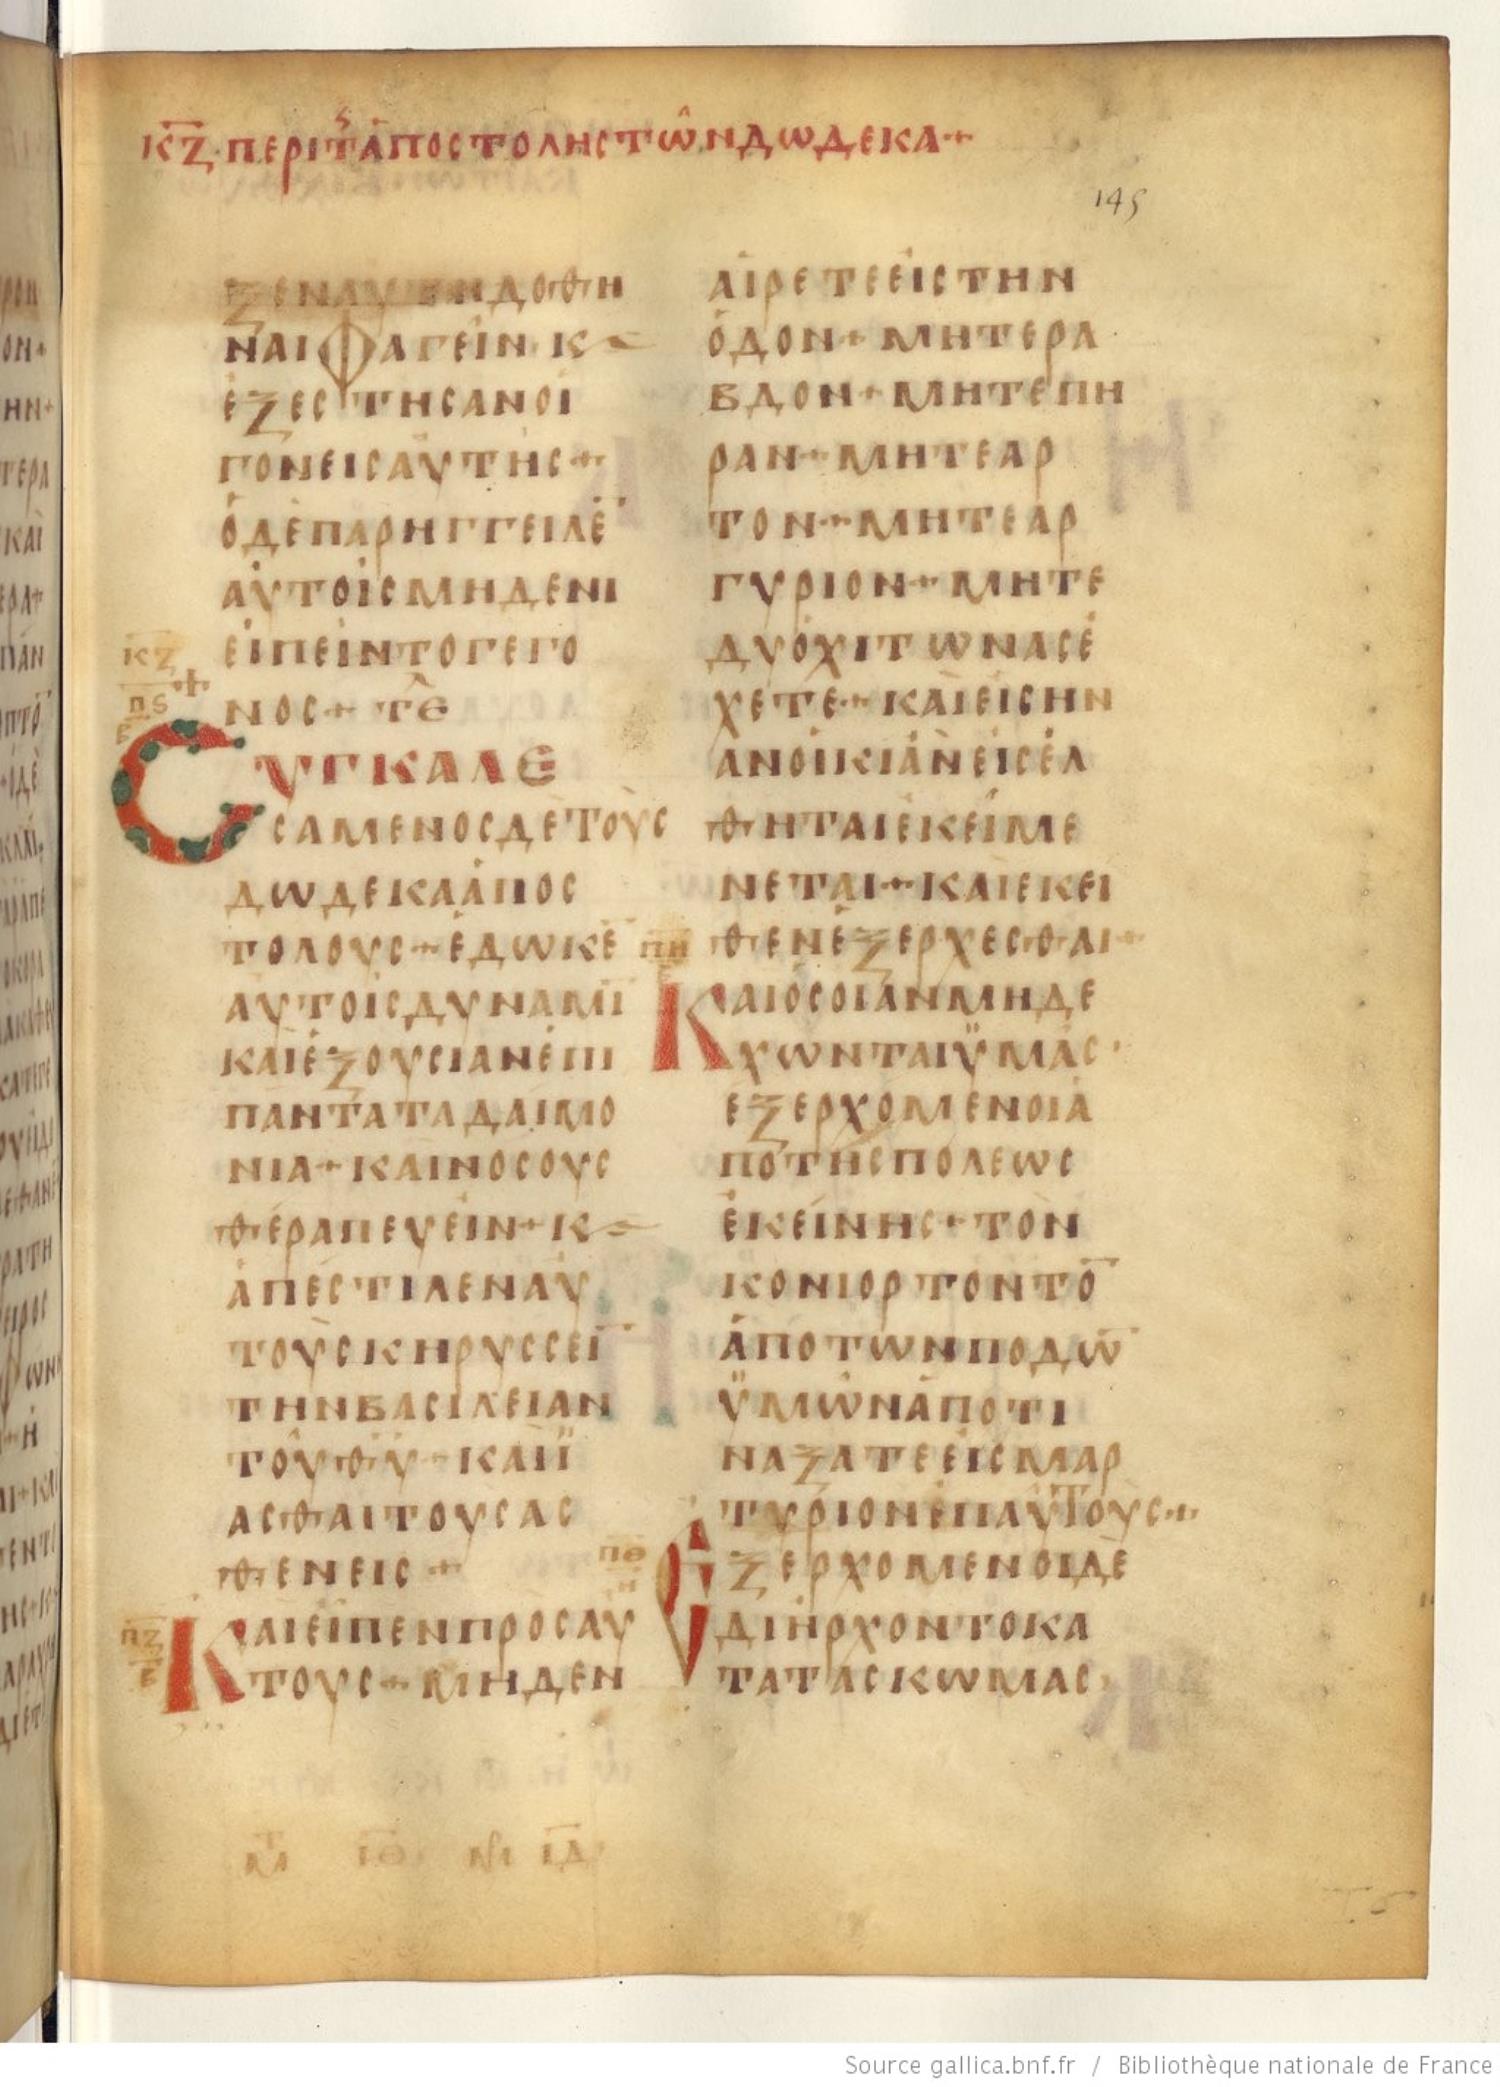 ΚΖ ΠΕΡΙ Τ ΑΠΟΣΤΟΛΗC ΤΩΝ ΔΩΔΕΚΑ+
145
ΞΕΝΑΥΤΗΔΟΘΗ
ΝΑΙΦΑΓΕΙΝ·Κ
ΕΞΕCΤΗCΑΝΟΙ
ΓΟΝΕΙCΑΥΤΗC+
ΟΔΕΠΑΡΗΓΓΕΙΛΕ̄
ΑΥΤΟΙCΜΗΔΕΝΙ
ΕΙΠΕΙΝΤΟΓΕΓΟ
ΝΟC+ ΤΕ
ΚΖ
ΠϚ
Β
CΥΓΚΑΛΕ
CΑΜΕΝΟCΔΕΤΟΥC
ΔΩΔΕΚΑΑΠΟC
ΤΟΛΟΥC+ΕΔΩΚΕ̄
ΑΥΤΟΙCΔΥΝΑΜῙ
ΚΑΙΕΞΟΥCΙΑΝΕΠΙ
ΠΑΝΤΑΤΑΔΑΙΜΟ
ΝΙΑ+ΚΑΙΝΟCΟΥC
ΘΕΡΑΠΕΥΕΙΝ+Κ
ΑΠΕCΤΙΛΕΝΑΥ
ΤΟΥCΚΗΡΥCCΕῙ
ΤΗΝΒΑCΙΛΕΙΑΝ
ΤΟΥΘ̄Ῡ+ΚΑΙΪ
ΑCΘΑΙΤΟΥCΑC
ΘΕΝΕΙC+
ΠΖ
Β
ΚΑΙΕΙΠΕΝΠΡΟCΑΥ
ΤΟΥC+ΜΗΔΕΝ
ΑΙΡΕΤΕΕΙCΤΗΝ
ΟΔΟΝ+ΜΗΤΕΡΑ
ΒΔΟΝ+ΜΗΤΕΠΗ
ΡΑΝ+ΜΗΤΕΑΡ
ΤΟΝ+ΜΗΤΕΑΡ
ΓΥΡΙΟΝ+ΜΗΤΕ
ΔΥΟΧΙΤΩΝΑCΕ
ΧΕΤΕ+ΚΑΙΕΙCΗΝ
ΑΝΟΙΚΙΑΝΕΙCΕΛ
ΘΗΤΑΙΕΚΕΙΜΕ
ΝΕΤΑΙ+ΚΑΙΕΚΕΙ
ΘΕΝΕΞΕΡΧΕCΘΑΙ+
ΠΗ
ΚΑΙΟCΟΙΑΝΜΗΔΕ
ΧΩΝΤΑΙΫΜΑC·
ΕΞΕΡΧΟΜΕΝΟΙΑ
ΠΟΤΗCΠΟΛΕΩC
ΕΚΕΙΝΗC+ΤΟΝ
ΚΟΝΙΟΡΤΟΝΤΟ̄
ΑΠΟΤΩΝΠΟΔΩ̄
ΫΜΩΝΑΠΟΤΙ
ΝΑΞΑΤΕΕΙCΜΑΡ
ΤΥΡΙΟΝΕΠΑΥΤΟΥC+
ΠΘ
Η
ΕΞΕΡΧΟΜΕΝΟΙΔΕ
ΔΙΗΡΧΟΝΤΟΚΑ
ΤΑΤΑCΚΩΜΑC
ΙΘ ΙΔ
Source gallica.bnf.fr / Bibliothèque nationale de France